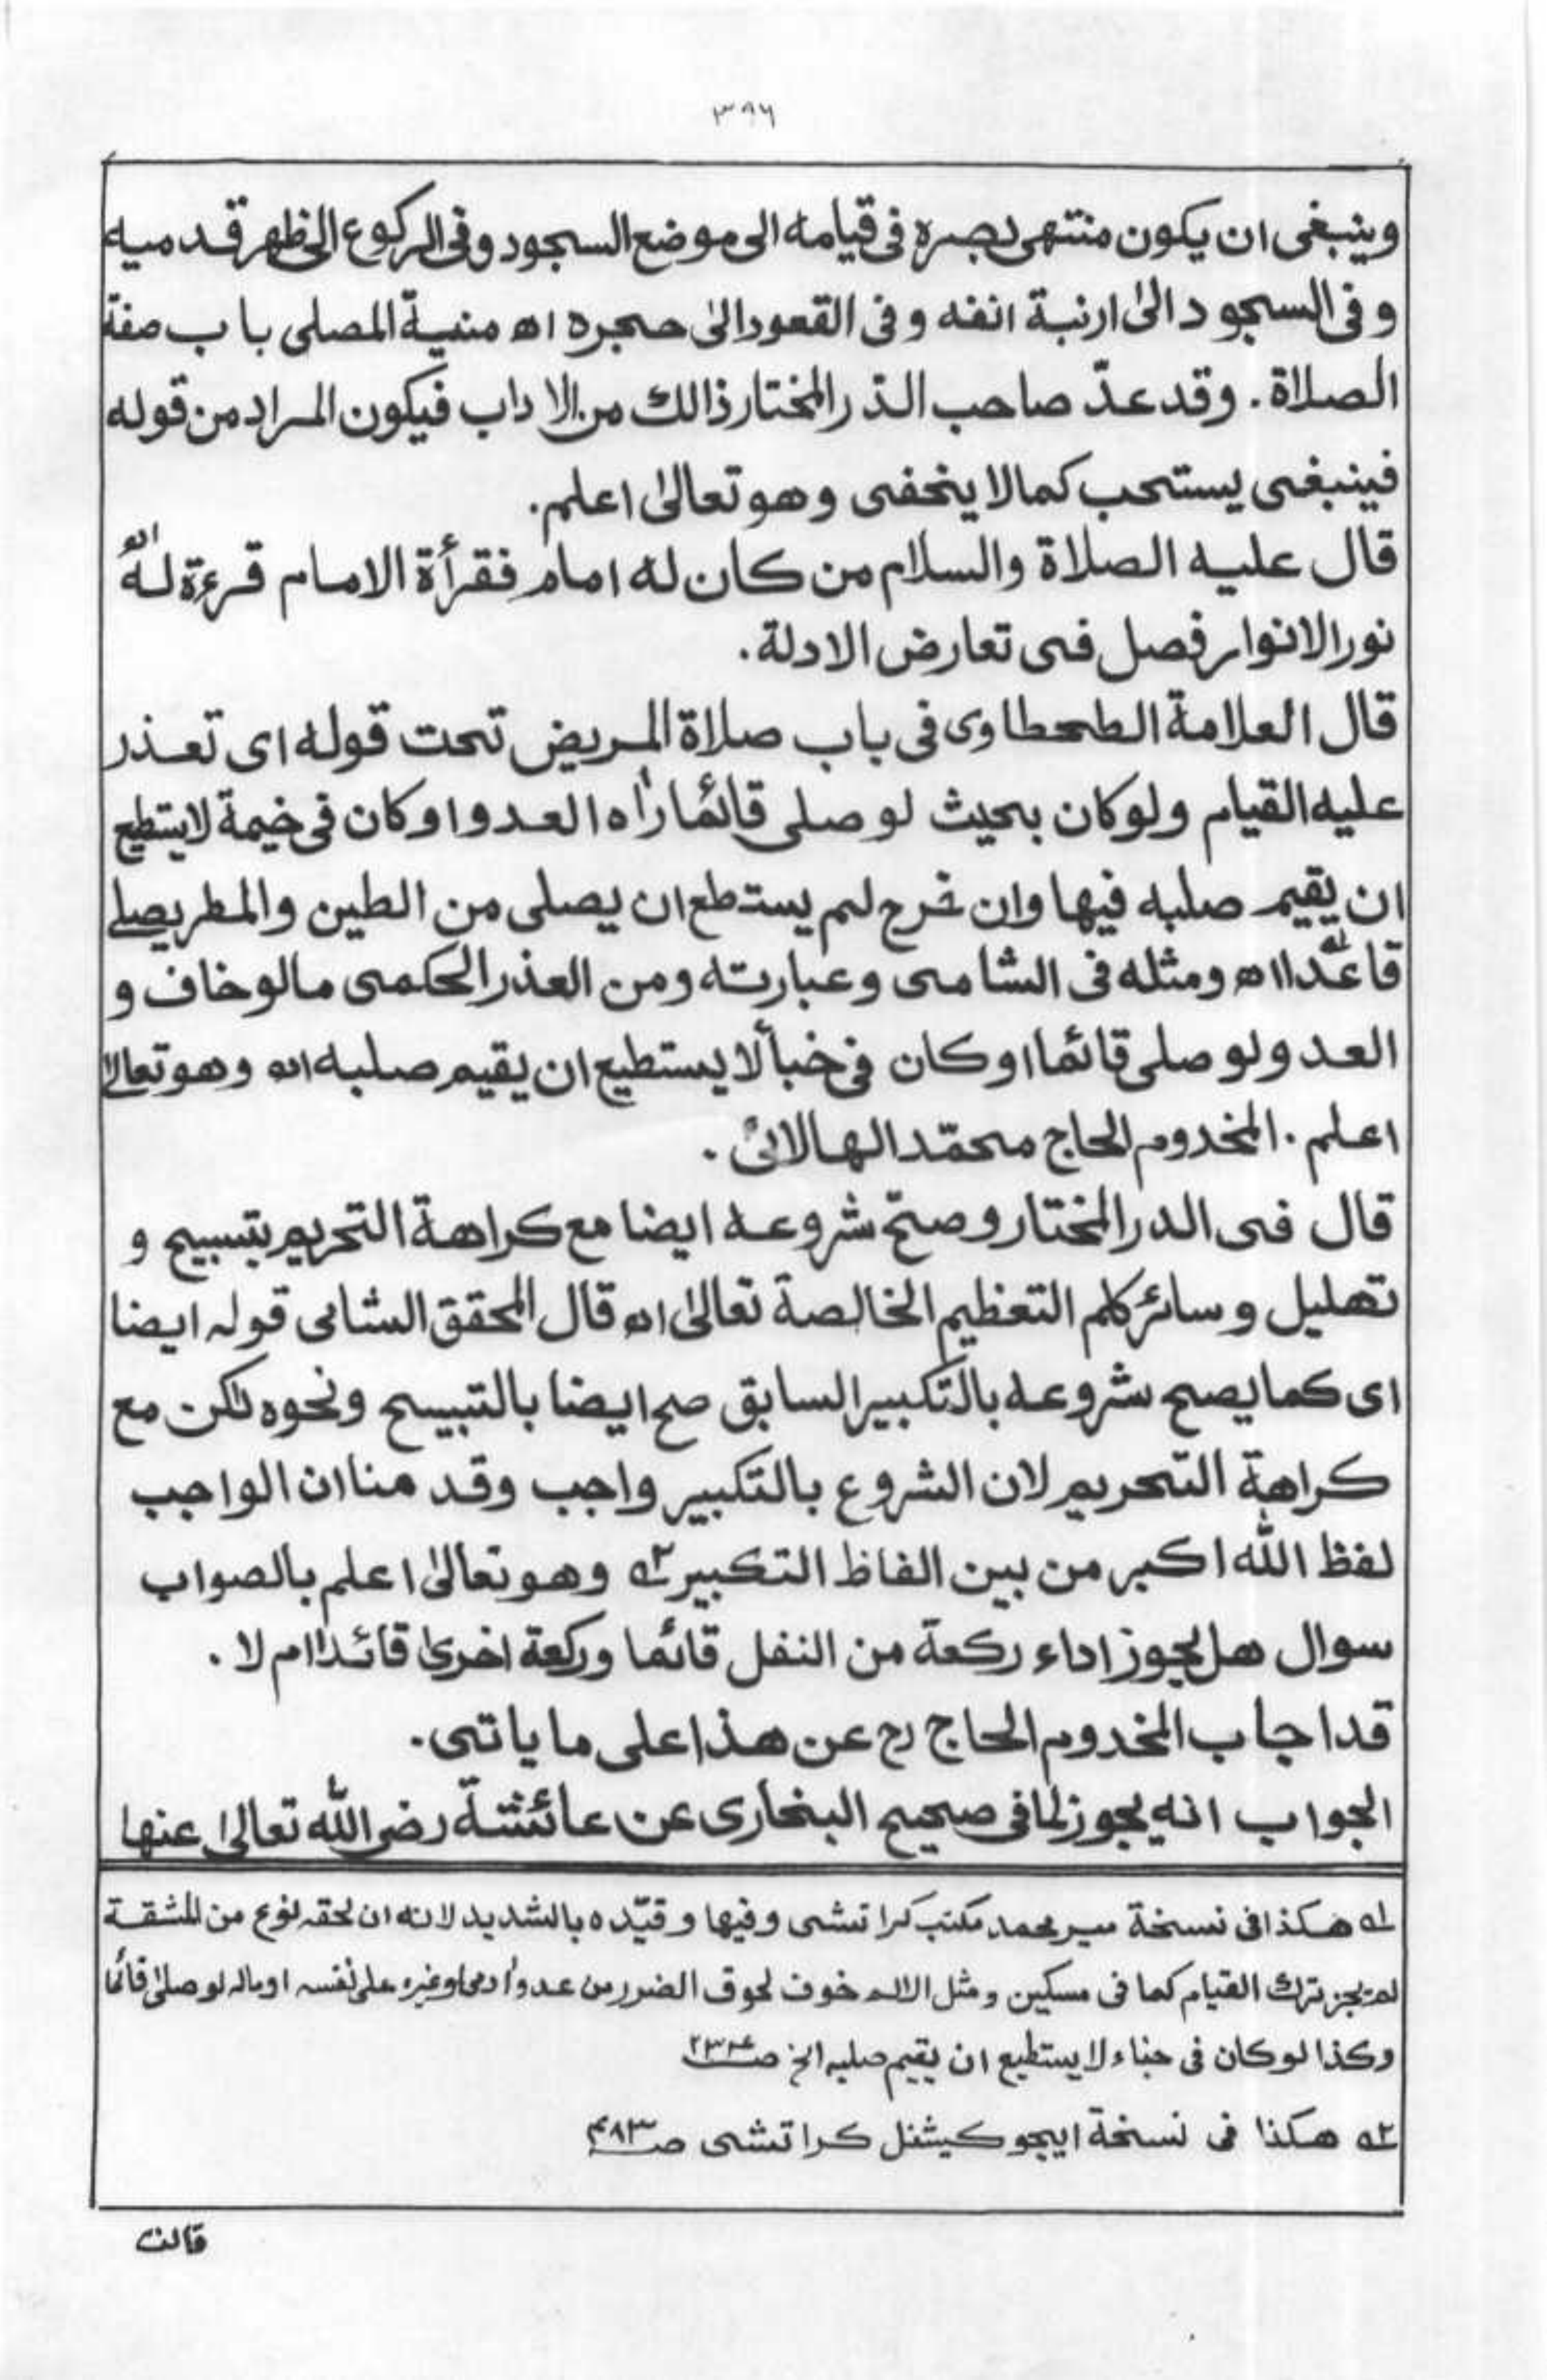 ٣٩٦
وينبغى ان يكون منتهى بصره فى قيامه الى موضع السجود وفى الركوع الى ظهر قدميه
و فى السجود الىٰ ارنبة انفه و فى القعود الىٰ حجره اه منية المصلى باب صفة
الصلاة . وقد عدّ صاحب الدّر المختار ذالك من الاداب فيكون المراد من قوله
فينبغى يستحب كما لا ينحفى وهو تعالىٰ اعلم.
قال عليه الصلاة والسلام من كان له امام فقرأة الامام قرءة له اه
نور الانوار فصل فى تعارض الادلة .
قال العلامة الطحطاوى فى باب صلاة المريض تحت قوله اى تعذر
عليه القيام ولو كان بحيث لو صلى قائما راٰه العدو او كان فى خيمة لا يستطيع
ان يقيم صلبه فيها وان خرج لم يستطع ان يصلى من الطين والمطر يصلى
قاعدا اه ١ه ومثله فى الشامى وعبارته ومن العذر الحكمى مالو خاف و
العدو لو صلى قائما او كان فى خبأ لا يستطيع ان يقيم صلبه اه وهو تعالىٰ
اعلم . المخدوم الحاج محمّد الهالائى .
قال فى الدر المختار وصحّ شروعه ايضا مع كراهة التحريم بتسبيح و
تهليل و سائر كلم التعظيم الخالصة تعالىٰ اه قال المحقق الشامى قوله ايضا
اى كما يصح شروعه بالتكبير السابق صح ايضا بالتسبيح ونحوه لٰكن مع
كراهة التحريم لان الشروع بالتكبير واجب وقد منا ان الواجب
لفظ الله اكبر من بين الفاظ التكبير ٢ه وهو تعالىٰ اعلم بالصواب
سوال هل يجوز اداء ركعة من النفل قائما وركعة اخرىٰ قائدا ام لا .
قد اجاب المخدوم الحاج رح عن هذا على ما ياتى .
الجواب انه يجوز لما فى صحيح البخارى عن عائشة رضى الله تعالىٰ عنها
١ه هكذا فى نسخة مير محمد مكتب كراتشى وفيها وقيّده بالشديد لانه ان لحقه نوع من المشقة
لم يجز ترك القيام كما فى مسكين ومثل الالم خوف لحوق الضرر من عدو اٰدمى او غيره على نفسه او ماله لو صلىٰ قائما
وكذا لو كان فى خباء لا يستطيع ان يقيم صلبه الخ صـ
٢ه هكذا فى نسخة ايجو كيشنل كراتشى صـ ٤٨٣
قالت